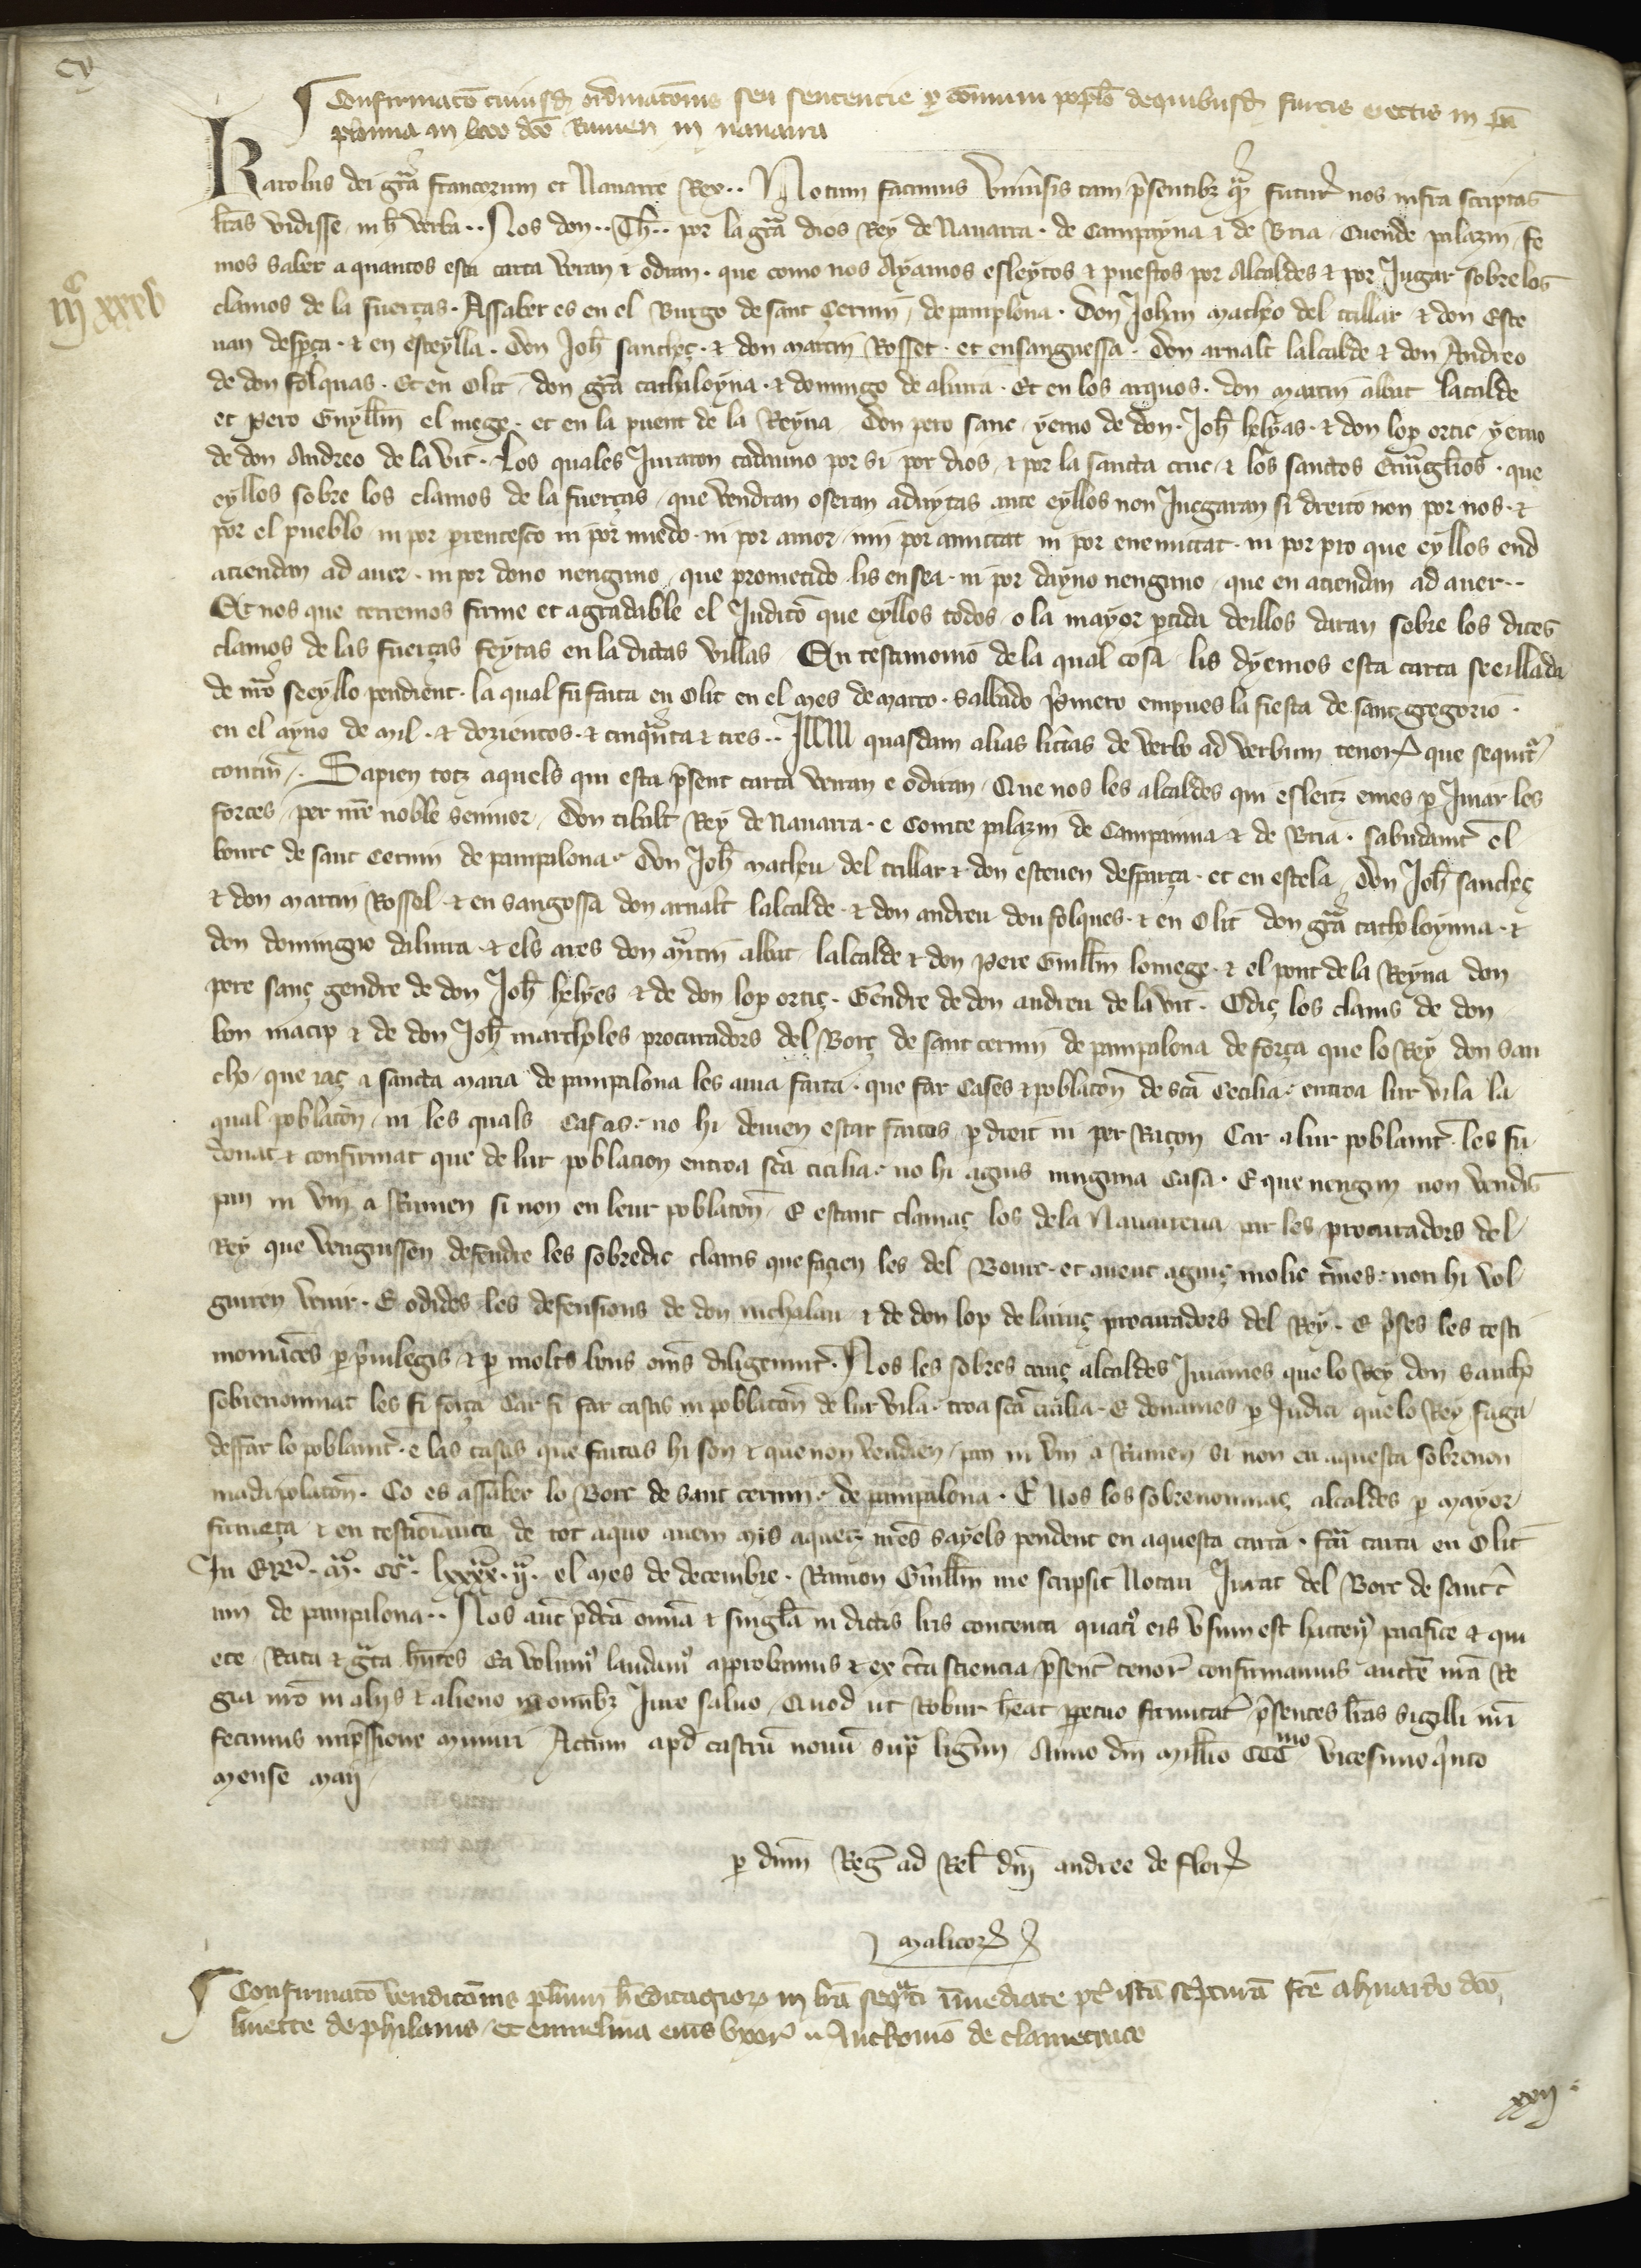 cv
Confirmatō cuiusdꝫ ordinatōnis seu sentencie ꝑ cōmuni popłō de quibusdꝫ furcis erectis in pā
pilonia in loco dcō Runen in nauarra
Karolus dei grā francorum et Nauarre Rex·· Notum facimus vniuˀsis tam p̄sentibꝫ qᵃꝫ futurˀ nos infra scriptas
lrās vidisse in h̄ verba·· Nos don·· Th̄·· por la grā dios Rey de Nauarra · de Campayna ⁊ de Bria Cuende palazin fe
mos saber a quantos esta carta veran ⁊ odran · que como nos Ayamos esleytos ⁊ puestos por Alcaldes ⁊ por Jugar sobre los
mͨ xxxv
clamos de la fuerças · Assaber es en el Burgo de sant Çernin de pamplona · Don Johan matheo del trillar ⁊ don Este
uan desꝑça · ⁊ en esteylla · Don Joh̄ sancheç · ⁊ don martin Rosset · et en sanguessa · Don arnalt lalcalde ⁊ don Andreo
de don folquas · Et en Olit don grā cathaloyna · ⁊ domingo de aluira · Et en los arquos · don martin albut lacalde
et pero Guyllm̄ el mege · et en la puent de la Reyna Don pero sanc yerno de don · Joh̄ helyas · ⁊ don lop ortic yerno
de don Andreo de la vit · Los quales Juraron cadauno por si por dios ⁊ por la sancta cruc ⁊ los sanctos Euāgelios · que
eyllos sobre los clamos de la fuerças que vendran o seran aduytas ante eyllos non Jucgaran si dreito non por nos · ⁊
por el pueblo ni por ꝑrentesco ni por miedo · ni por amor nin por amiztat ni por enemiztat · ni por pro que eyllos end
atiendan ad auer · ni por dono nenguno que prometido lis en sea · ni por dayno nenguno que en atiendan ad auer··
Et nos que terremos firme et agradable el Judicō que eyllos todos o la mayor ꝑtida deillos daran sobre los ditos
clamos de las fuerças feytas en la dictas villas En testimonio de la qual cosa lis dyemos esta carta seeillada
de nrō seeyllo pendient · la qual fu faita en Olit en el mes de março · sabbado p̄mero empues la fiesta de sanz gregorio ·
en el ayno de mil · ⁊ dozientos · ⁊ cinqᵃnta ⁊ tres ·· Item quasdam alias litˀas de verbo ad verbum tenorꝫ que sequitˀ
contin̄ · Sapien totz aquels qui esta p̄sent carta veiran e odiran Que nos les alcaldes qui esleitz emes ꝑ Jutiar les
forces per nrē noble seinnor Don tibalt Rey de Nauarra · e Comte palazin de Campainna ⁊ de Bria · sabudamt̄ el
bourc de sant Cernin de pampalona · Don Joh̄ matheu del trillar ⁊ don esteuen desparça · et en estela Don Joh̄ sancheç
⁊ don martin Rossel · ⁊ en sangossa don arnalt lalcalde · ⁊ don andreu don folques · ⁊ en Olit don grā catholoynna · ⁊
don domingo daluira · ⁊ els arcs don mᵃrtin albut lalcalde ⁊ don pere Guillm̄ lo mege · ⁊ el pont de la Reyna don
pere sanç gendre de don Joh̄ helyes ⁊ de don lop ortiç · Gendre de don andreu de la vit · Odiç los clams de don
bon macip ⁊ de don Joh̄ marcheles procuradors del Borç de sant cernin de pampalona de força que lo Rey don san
cho que iaç a sancta maria de pampalona les auia faita · que far Cases ⁊ poblatōn de scā Cecilia entroa lur vila la
qual poblatōn ni les quals Casas no hi deuien estar faites ꝑ dreit ni per Raçon Car a lur poblamt̄ les fu
donat ⁊ confirmat que de lur poblacion entroa scā cicilia no hi agues ninguna casa · E que nengun non vendes
pan ni vin a Rumen si non en leur poblatōn E estant clamaç los de la Nauarreria ni les procuradors del
Rey que venguissen defendre les sobredic clams que façien les del Bourc · et auent aguuç moltz t̄mes · non hi vol
guiren venir · E odides les defensions de don nicholau ⁊ de don lop de laiuç procuradors del Rey · E p̄ses les testi
moniāces ꝑ p̄uilegis ⁊ ꝑ molts bons omˀs diligentmt̄ · Nos les sobres ditz alcaldes Juiames que lo Rey don sancho
sobrenomnat les fi força Car fi far casas ni poblatōn de lur vila troa scā cicilia · E donames ꝑ Judici que lo Rey faga
desfar lo poblamt̄ · e las casas que faitas hi son ⁊ que non venden pan ni vin a Rumen si non en aquesta sobrenon
mada poblatōn · Co es assaber lo Borc de sant cernin de pampalona · E Nos los sobrenomnaç alcaldes ꝑ mayor
firmeça ⁊ en testimoniança de tot aquo auem mis aquetz nrēs sayels pendent en aquesta carta · fc̄a carta en Olit
In Era · mᵃ · ccᵃ · lxxxxᵃ · ijᵃ · el mes de decembre · Ramon Guillm̄ me scripsit Notari Jurat del Borc de sant c̄
nin de pampalona·· Nos autē p̄dc̄a omīa ⁊ singla in dictis lrīs contenta quatꝰ eis vsum est hactenꝰ pacifice ⁊ qui
ete Rata ⁊ grata hn̄tes Ea volumꝰ laudamꝰ approbamus ⁊ ex c̄ta sciencia p̄sent̄ tenorˀ confirmamus auct̄e nrā Re
gia nrō in aliis ⁊ alieno in omibꝫ Jure saluo Quod ut Robur heāt ꝑpetuo firmitatˀ p̄sentes lrās sigilli nrī
fecimus imp̄ssione muniri Actum apđ castrū nouū supᵃ ligˀim Anno dn̄i millīo CCCᵐᵒ vicesimo q̄nto
mense maij
ꝑ dn̄m Regˀ ad Relˀ dn̄i andree de florꝫ
malicorꝫ
Confirmatō venditōnis ꝑluium heditagiorꝫ in lrā seqᵃti īmediate pꝰ istā sc̄pturā fcē a huardo dcō
linette de philanis et emmelina eius vxorˀ Anthonio de clamecrico
xxij